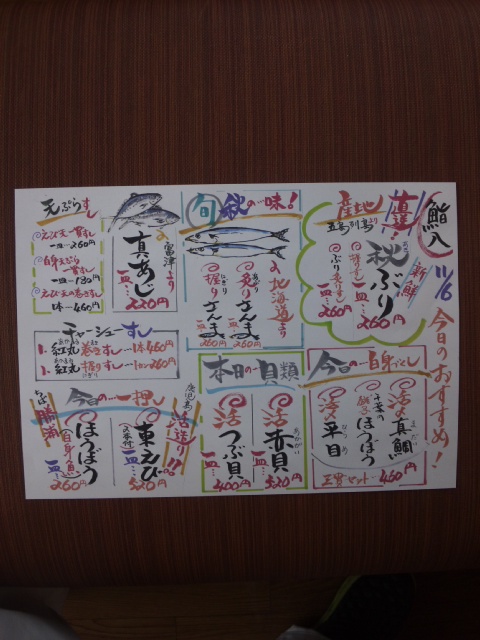 鮨人
11/6
今日のおすすめ!
産地直送!
五島列島より
新鮮
秋ぶり
一皿…260円
一皿…260円
旬
秋の味!
北海道より
炙りさんま
一皿260円
握りさんま
一皿260円
富津より
真あじ
一皿…220円
天ぷらすし
えび天一貫すし
一皿…260円
白身天ぷら
一貫すし
一皿…180円
えび天の巻きすし
1本…460円
チャーシューすし
1.紅丸 巻きすし…1本460円
1.紅丸 握りすし…1カン260円
今日の一白身づくし
活〆真鯛
千葉の
ほうぼう
活〆平目
三貫セット…460円
本日の貝類
活赤貝
一皿…520円
活つぶ貝
一皿…400円
今日の一押し
鹿児島
活造り!!
車えび
一皿…520円
勝浦
ほうぼう
(白身の魚)
一皿…260円